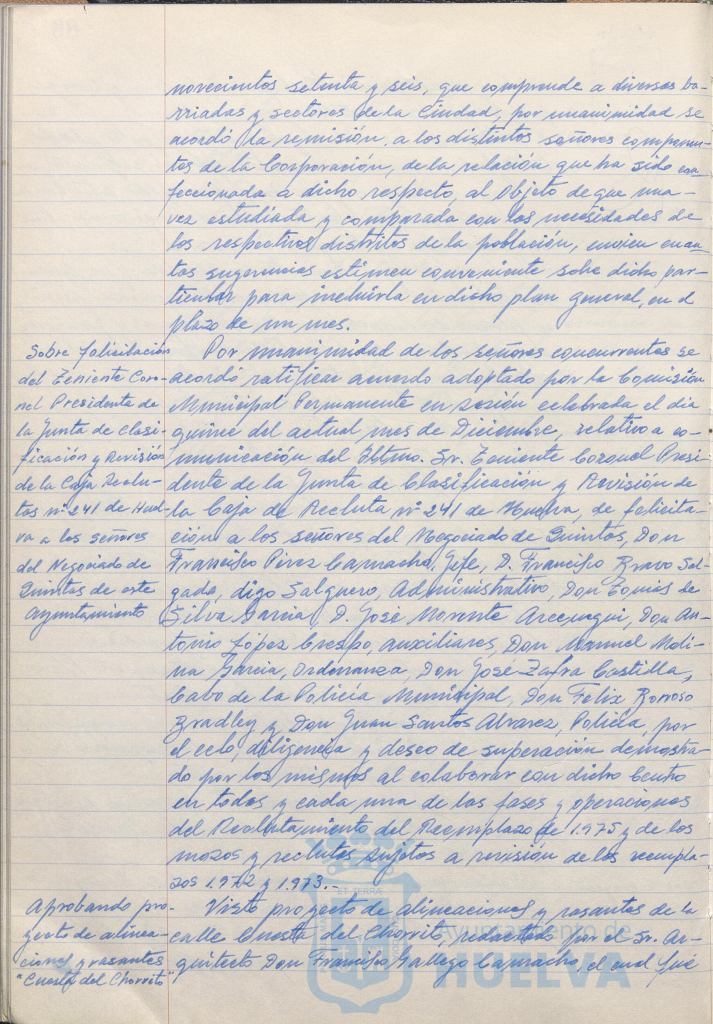 novecientos setenta y seis, que comprende a diversas ba-
rriadas y sectores de la Ciudad, por unanimidad se
acordó la remisión, a los distintos señores componen-
tes de la Corporación, de la relación que ha sido con
feccionada a dicho respecto, al objeto de que una-
vez estudiada y comparada con las necesidades de
los respectivos distritos de la población, envien cuan
tas sugerencias estimen conveniente sobre dicho par-
ticular para incluirla en dicho plan general, en el
plazo de un mes.
Sobre felicitación
del Teniente Coro-
nel Presidente de
la Junta de Clasi-
ficación y Revisión
de la Caja Reclu-
tas nº 241 de Huel-
va a los señores
del Negociado de
Quintas de este
Ayuntamiento
Por unanimidad de los señores concurrentes se
acordó ratificar acuerdo adoptado por la Comisión
Municipal Permanente en sesión celebrada el dia
quince del actual mes de Diciembre, relativo a co-
municación del Iltmo. Sr. Teniente Coronel Presi-
dente de la Junta de Clasificación y Revisión de
la Caja de Recluta nº 241 de Huelva, de felicita-
ción a los señores del Negociado de Quintas, Don
Francisco Pérez Camacho, Jefe, D. Francisco Bravo Sal-
gado, digo Salguero, Administrativo, Don Tomás de
Silva Garcia, D. José Morente, Don An-
tonio López Crespo, auxiliares, Don Manuel Moli-
na Garcia, Ordenanza, Don José Zafra Castilla,
Cabo de la Policía Municipal, Don Felix Borroso
Bradley y Don Juan Santos Alvarez, Policía, por
el celo, diligencia y deseo de superación demostra-
do por los mismos al colaborar con dicho Centro
en todas y cada una de las fases y operaciones
del Reclutamiento del Reemplazo de 1.975 y de los
mozos y reclutas sujetos a revisión de los reempla-
zos 1.972 y 1.973.-
Aprobando pro-
yecto de alinea-
ciones y rasantes
"Cuesta del Chorrito"
Visto proyecto de alineaciones y rasantes de la
calle Cuesta del Chorrito, redactado por el Sr. Ar-
quitecto Don Francisco Gallego Camacho, el cual fué
Ayuntamiento de
HUELVA